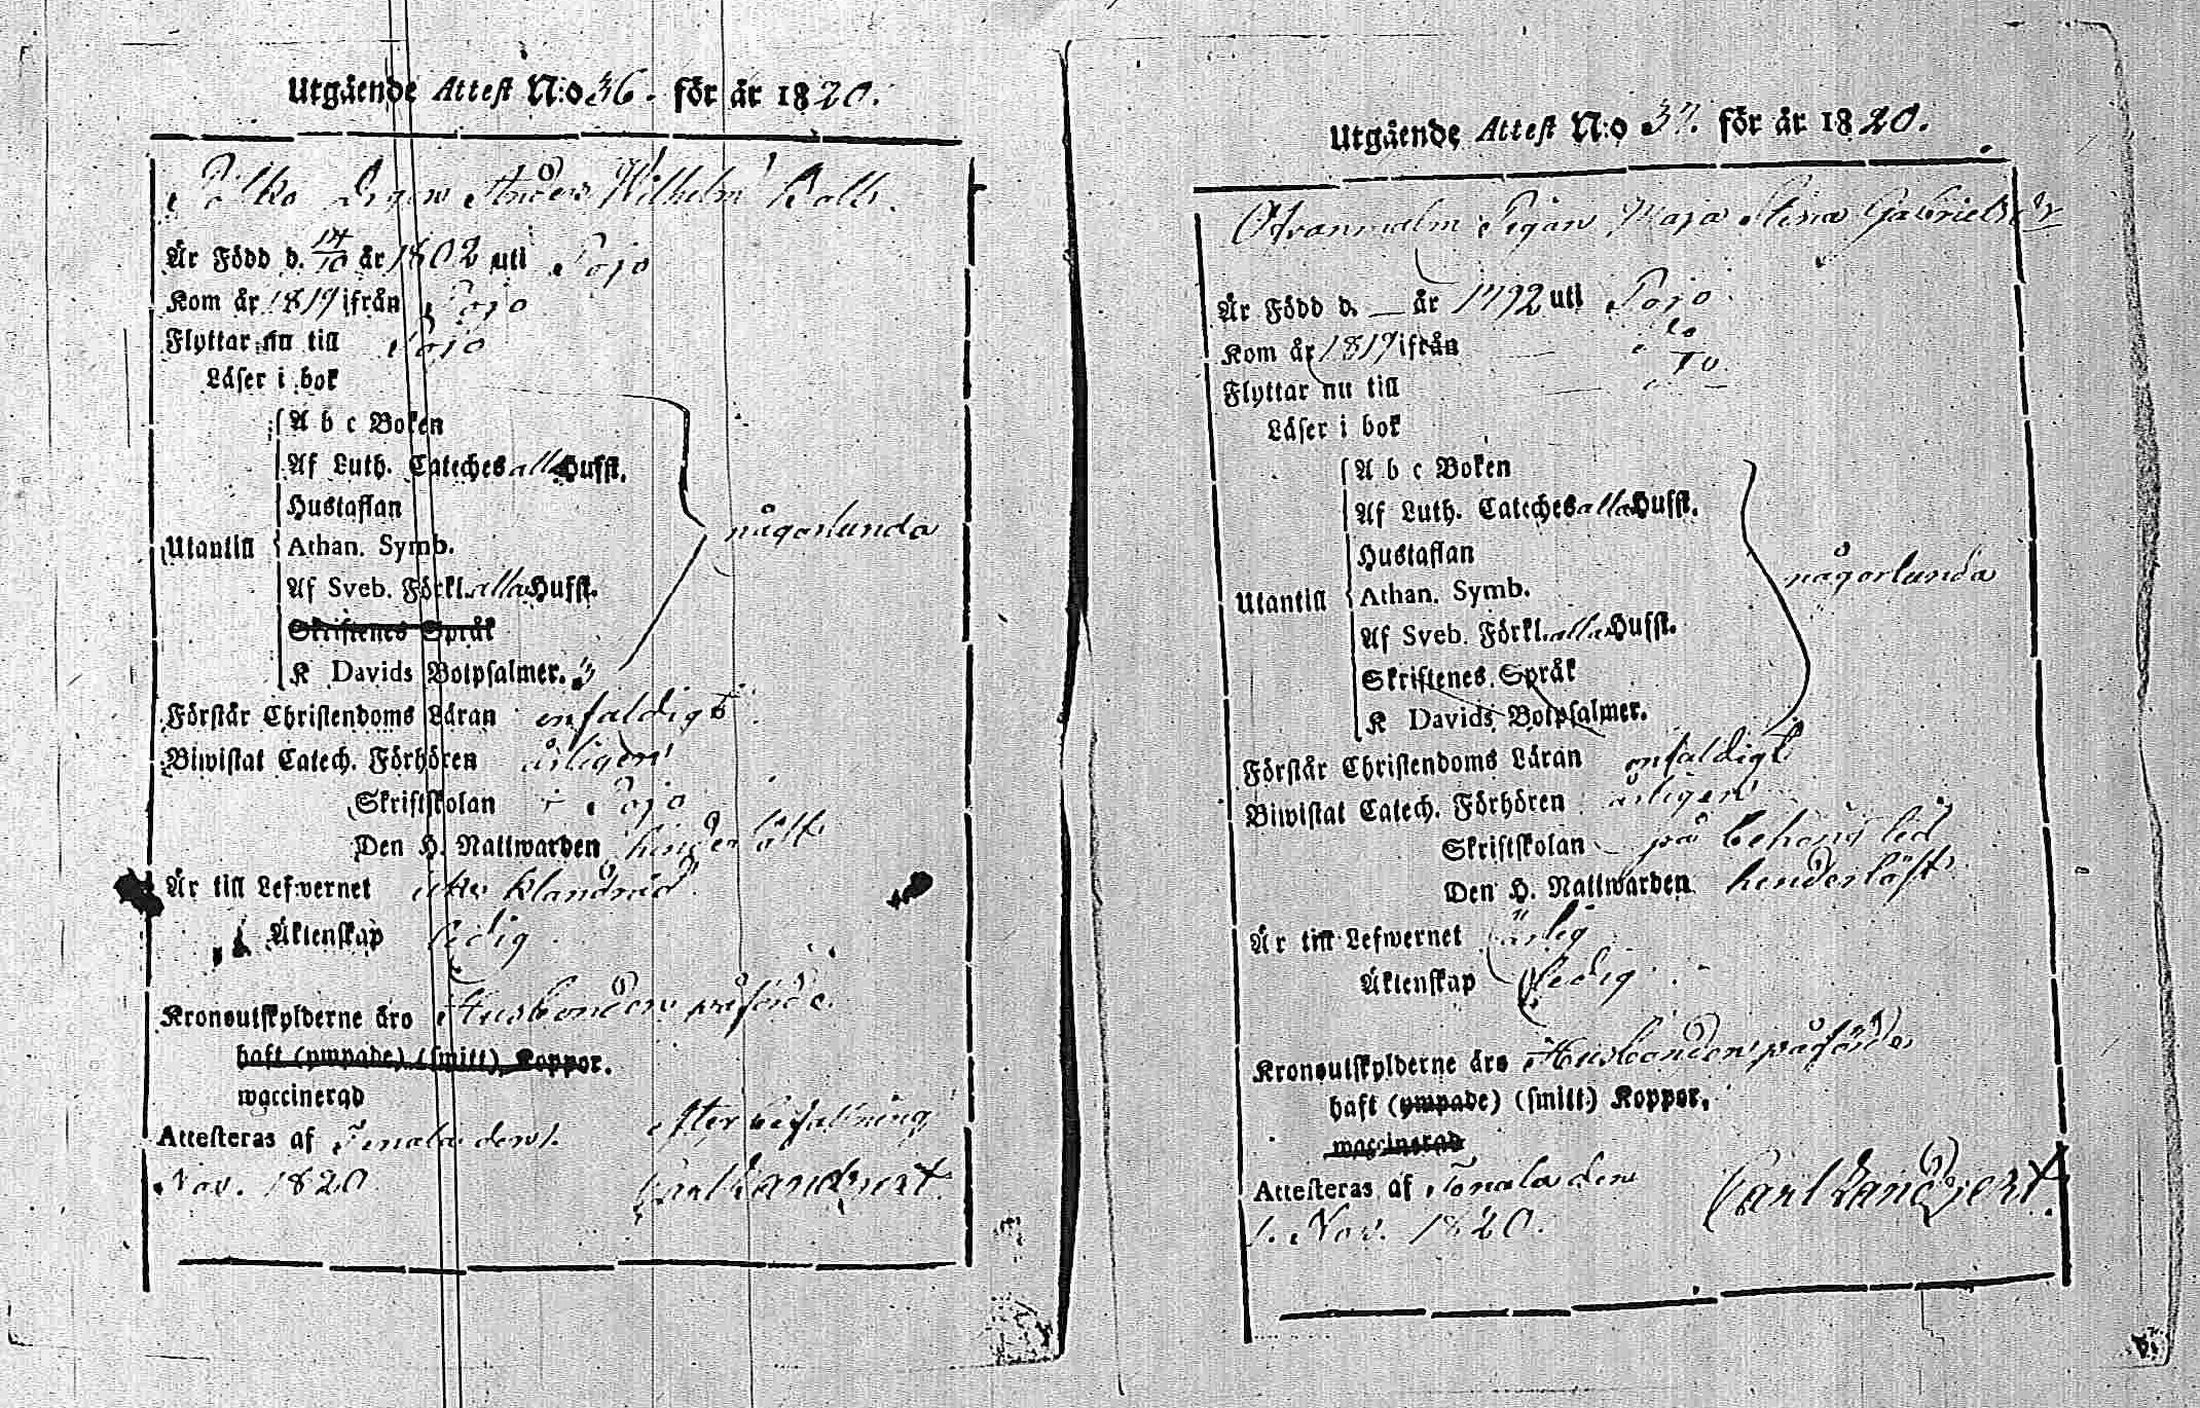 Utgående Attest N:o 36. för år 1820.
Drgen Anders Wilhelm
Är Född d. 14/10 år 1802 uti Pojo
Kom år 1819 ifrån Pojo
Flyttar nu till Pojo
Läser i bok
A b c Boken
Af Luth. Cateches alla Hufst.
Hustaflan
någorlunda
Utantill Athan. Symb.
Af Sveb. Förkl. alla Hufst.
Skriftenes Språk
K Davids Botpsalmer.
Förstår Christendoms Läran enfaldigt
Biwistat Catech. Förhören årligen
Skriftskolan i Pojo
Den H. Nattwarden
Är till Lefwernet icke klandrad
Äktenskap ledig
Kronoutskylderne äro Husbonden påförde.
haft (ympade) (smitt) Koppor.
waccinerad
Attesteras af Tenala den 1. efter befallning
Nov. 1820 Carl Landgert
Utgående Attest N:o 37. för år 1820.
Pigan Maja Stina Gabrielsdr
Är Född d. — år 1792 uti Pojo
Kom år 1819 ifrån — do
Flyttar nu till — do
Läser i bok
A b c Boken
Af Luth. Cateches alla Hufst.
Hustaflan
någorlunda
Utantill Athan. Symb.
Af Sveb. Förkl. alla Hufst.
Skriftenes Språk
K Davids Botpsalmer.
Förstår Christendoms Läran enfaldigt
Biwistat Catech. Förhören årligen
Skriftskolan på behörig tid
Den H. Nattwarden
Är till Lefwernet ärlig
Äktenskap ledig
Kronoutskylderne äro Husbonden påförde
haft (ympade) (smitt) Koppor.
waccinerad
Attesteras af Tenala den Carl Landgert.
1. Nov. 1820.